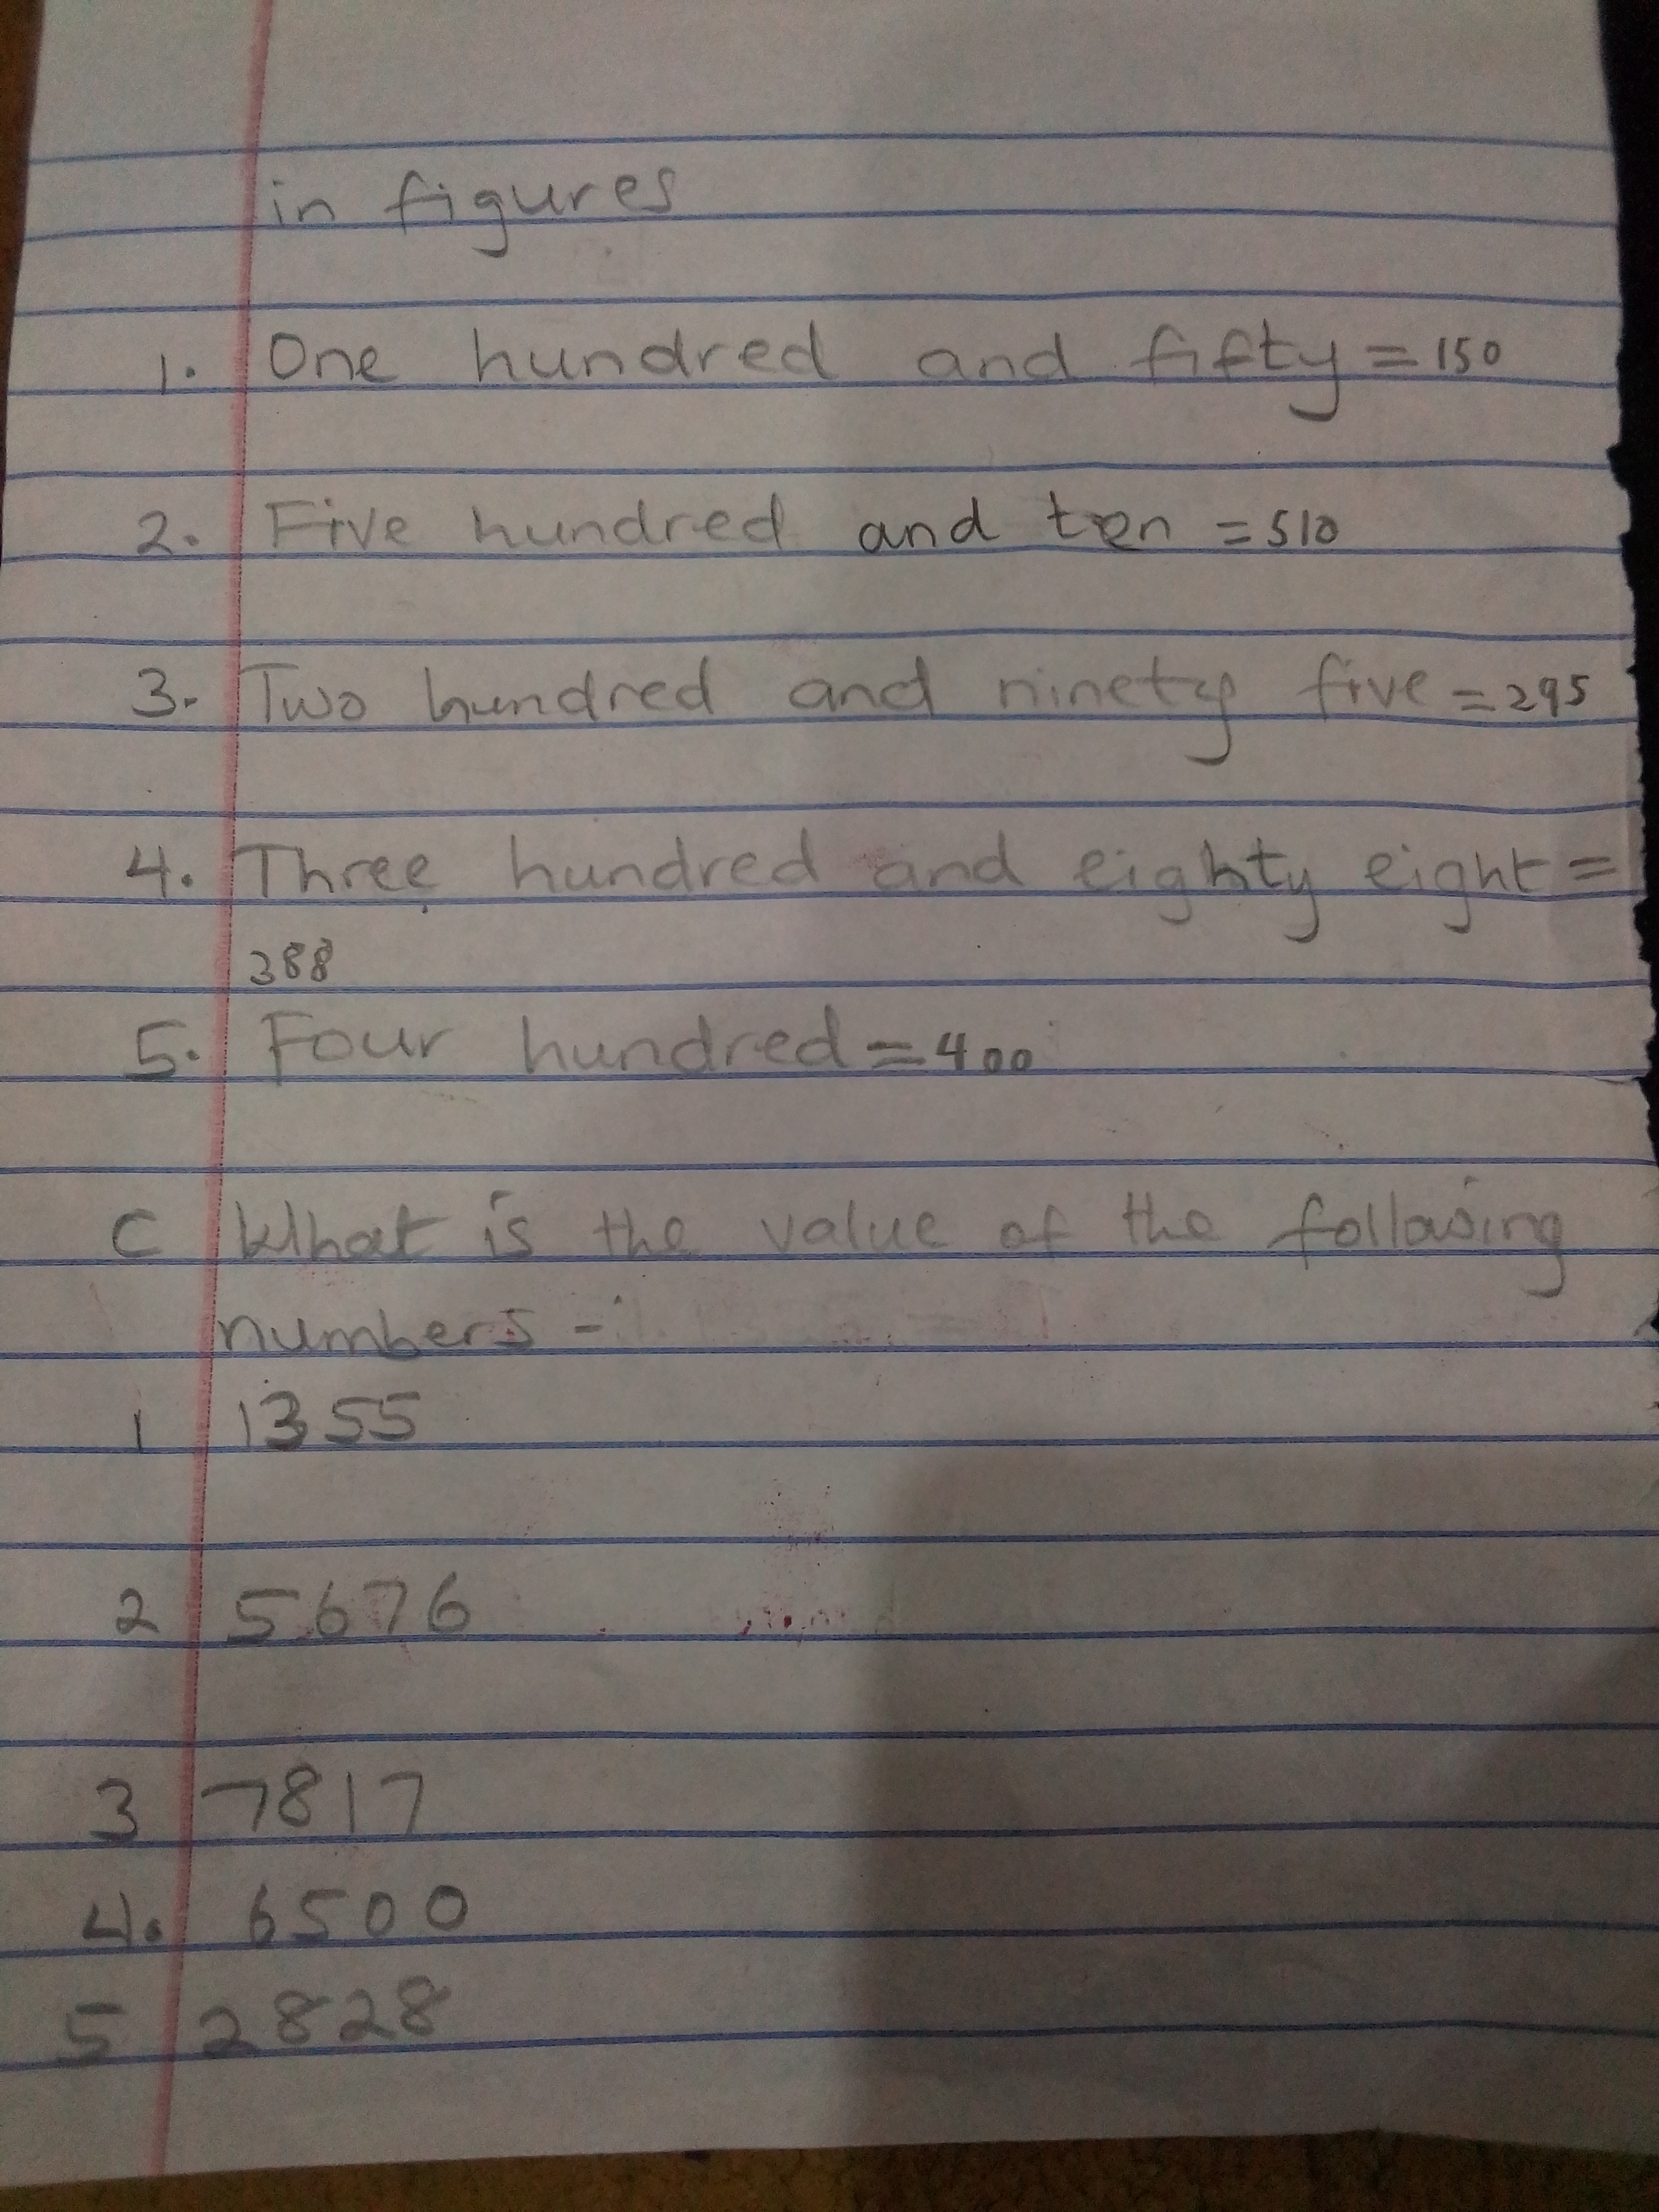 in figures
1. One hundred and fifty = 150
2. Five hundred and ten = 510
3. Two hundred and ninety five = 295
4. Three hundred and eighty eight =
388
5. Four hundred = 400
C What is the value of the following
numbers -
1 1355
2 5676
3 7817
4. 6500
5 2828